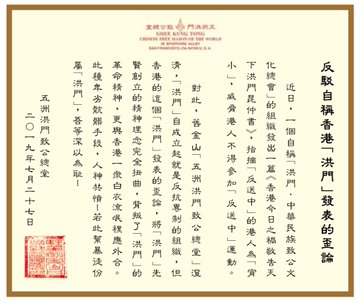 五洲洪門致公總堂
GHEE KUNG TONG
CHINESE FREE MASON OF THE WORLD
36 SPOFFORD ALLEY
SAN FRANCISCO, CA 94108 U.S.A.
反駁自稱香港「洪門」發表的歪論
近日，一個自稱「洪門．中華民族致公文
化總會」的組織發出一篇《香港今日之禍敬告天
下洪門昆仲書》，指摘「反送中」的港人為「宵
小」，威脅港人不得參加「反送中」運動。
對此，舊金山「五洲洪門致公總堂」澄
清，「洪門」自成立起就是反抗專制的組織，但
香港的這個「洪門」發表的歪論，將「洪門」先
賢創立的精神理念完全扭曲，背叛了「洪門」的
革命精神，更與香港一眾白衣流氓裡應外合。
此種卑劣骯髒手段，人神共憤！若此幫暴徒份
屬「洪門」，吾等深以為恥！
五洲洪門致公總堂
二〇一九年七月二十七日